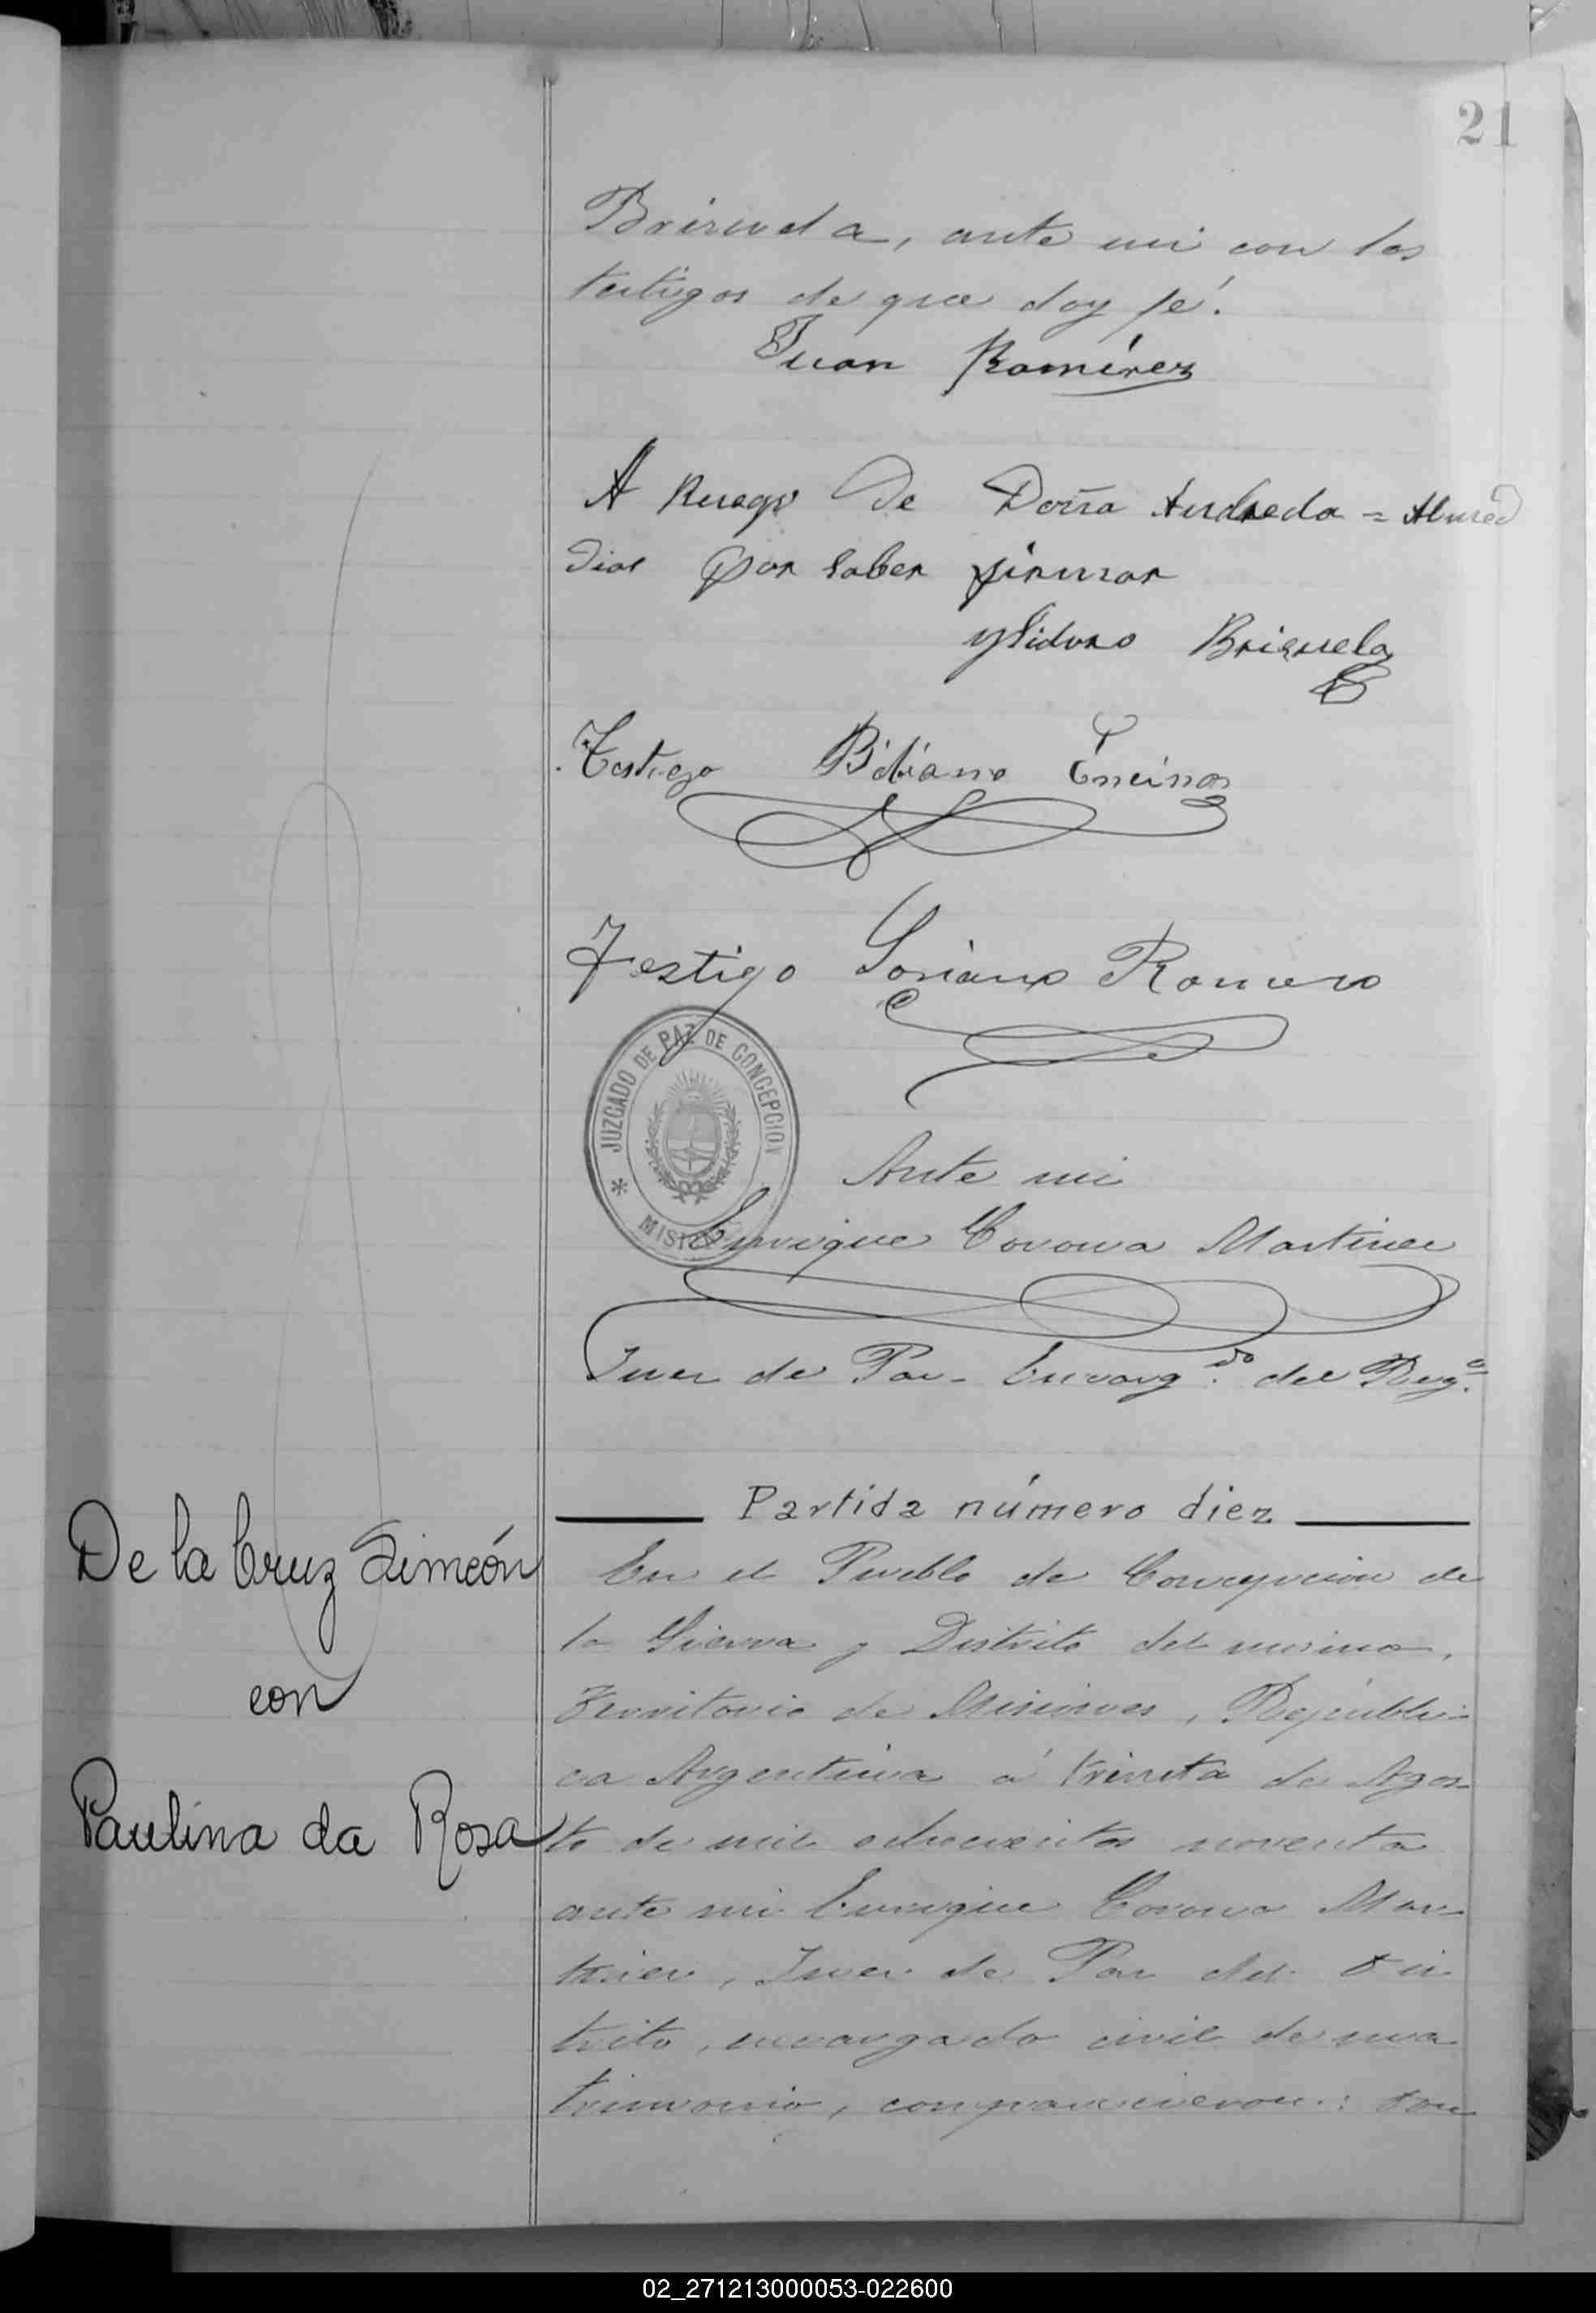 21
Brizuela, ante mi con los
testigos de que doy fé.
Juan Ramírez
A Ruego De Doña Andreda =
dias por saber firmar
ysidoro Brisuela
Testigo Bibiano Encinas
Testigo Soriano Romero
JUZGADO DE PAZ DE CONCEPCION
* MISIONES
Ante mi
Enrique Corona Martinez
Juez de Paz - Encargdo. del Rego.
Partida número diez
De la Cruz Simeón
con
Paulina da Rosa
En el Pueblo de Concepcion de
la Sierra y Distrito del mismo,
Territorio de Misiones, Repúbli-
ca Argentina á treinta de Agos-
to de mil ochocientos noventa
ante mi Enrique Corona Mar-
tinez, Juez de Paz del Dis
trito, encargado civil de ma
trimonio, comparecieron: Don
02_271213000053-022600